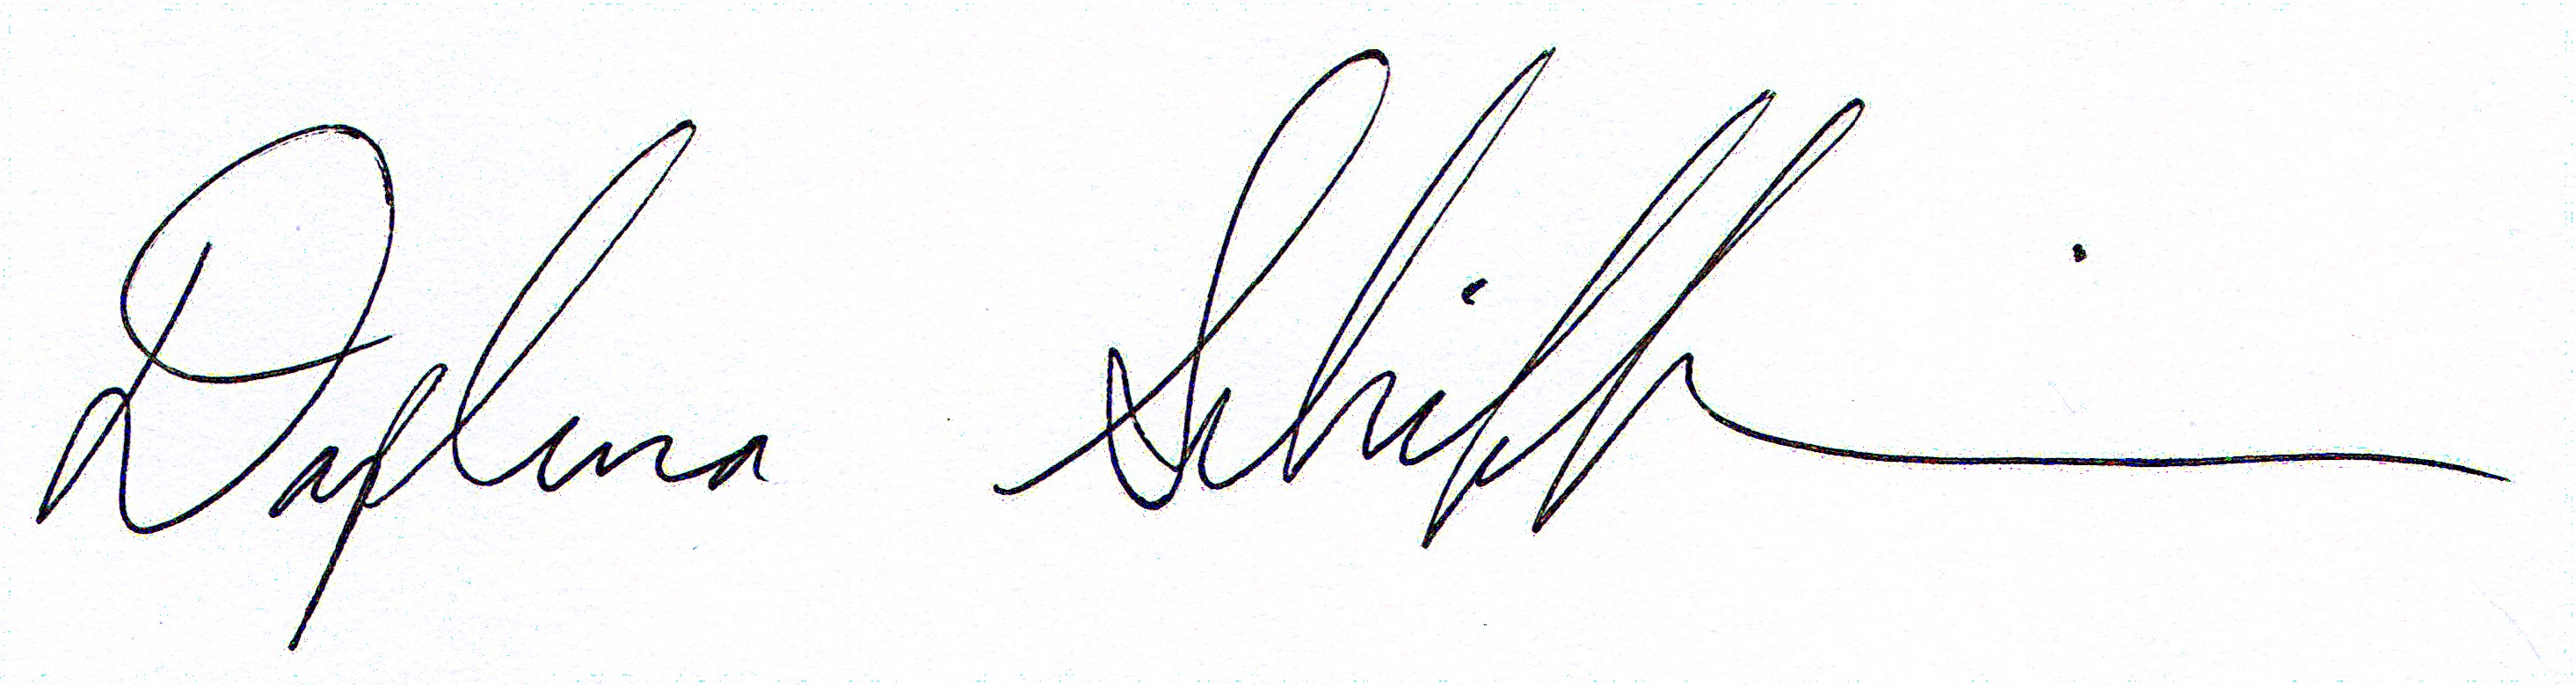 Daphna Schiff